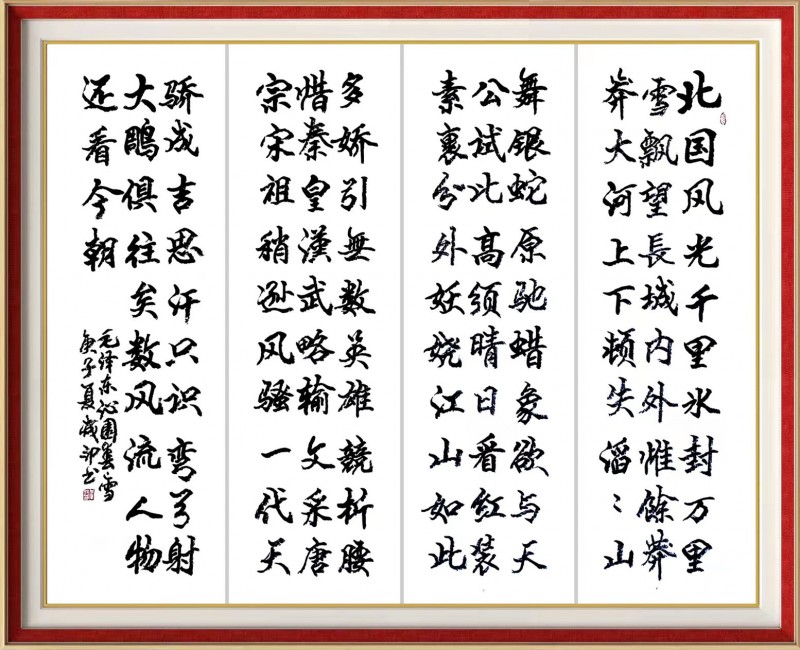 北国风光千里冰封万里
雪飘望長城内外惟餘莽
莽大河上下顿失滔〻山
舞银蛇原驰蜡象欲与天
公试比高须晴日看红装
素裹分外妖娆江山如此
多娇引無数英雄競折腰
惜秦皇漢武略输文采唐
宗宋祖稍逊风骚一代天
骄成吉思汗只识弯弓射
大鵰俱往矣数风流人物
还看今朝
毛泽东沁园春雪
庚子夏书